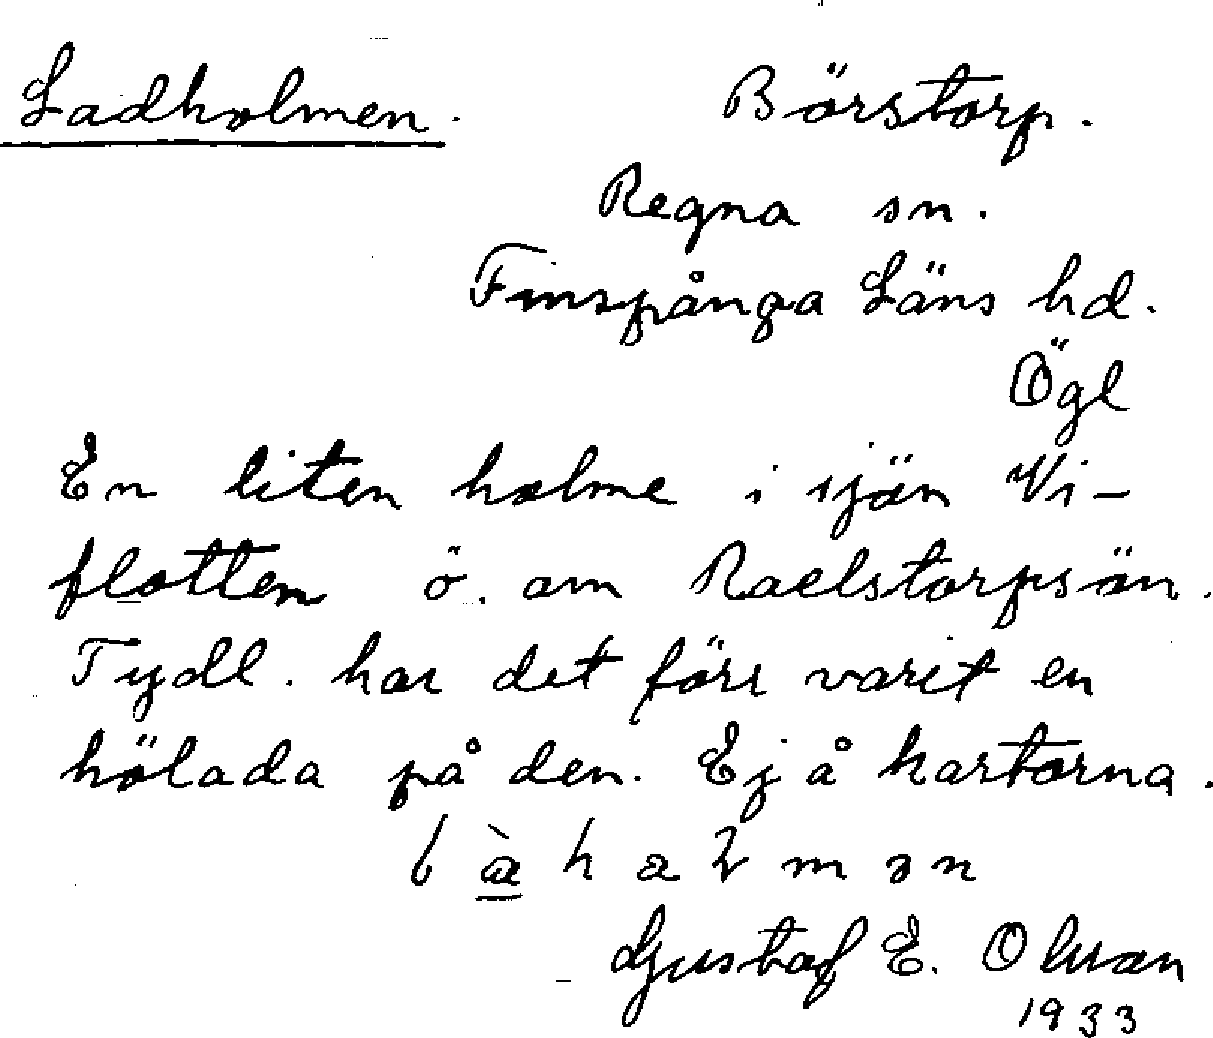 Ladholmen. Börstorp.
Regna sn.
Finspånga Läns hd.
Ögl
En liten holme i sjön Vi-
flotten ö. om Raelstorpsön.
Tydl. har det förr varit en
hölada på den. Ej å kartorna.
Gustaf E. Olsson
1933